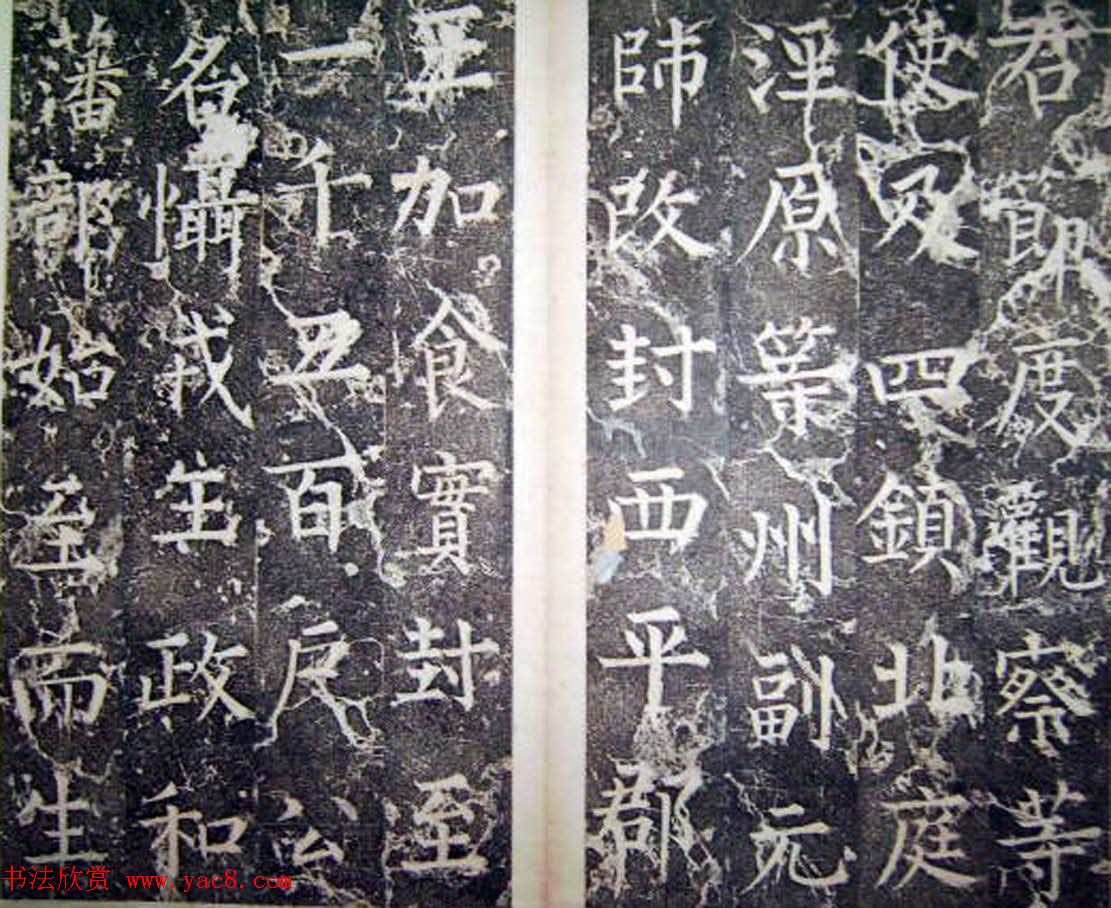 右節度觀察等
使及四鎮北庭
涇原等州副元
帥改封西平郡
王加食實封至
一千五百戶公
名懾戎政和
蕃部始至而生
书法欣赏 www.yac8.com